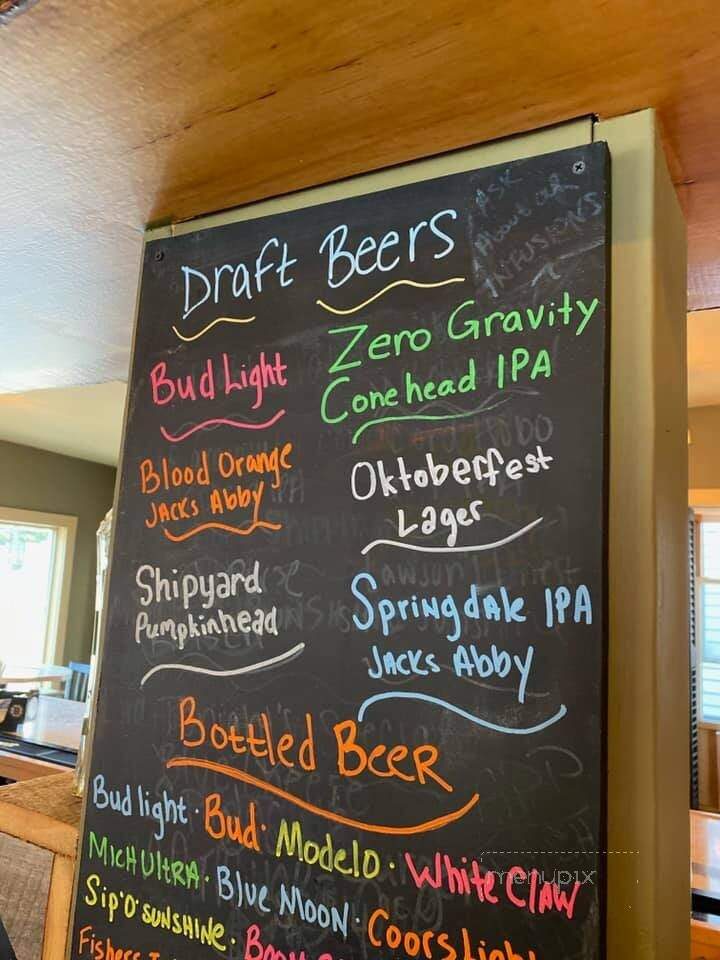 Ask
About our
INFUSIONS
Draft Beers
Bud Light
Zero Gravity
Conehead IPA
Blood Orange
Jacks Abby
Oktoberfest
Lager
Shipyard
Pumpkinhead
Springdale IPA
Jacks Abby
Bottled Beer
Bud light · Bud · Modelo · White Claw
Mich Ultra · Blue Moon · Coors Light
Sip'O'Sunshine ·
Fishers
menupix